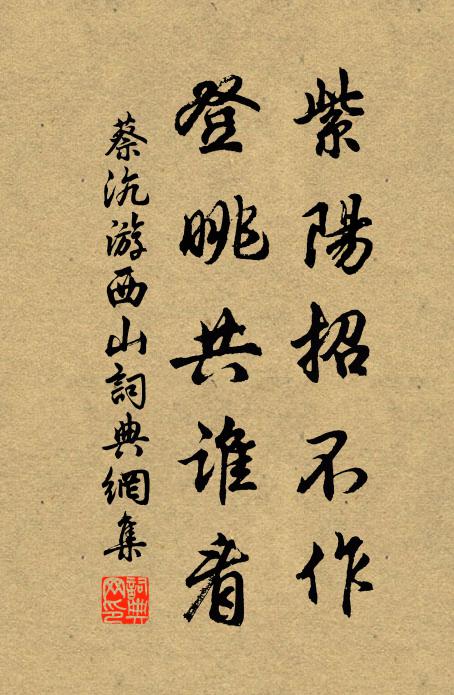 紫陽招不作
登眺共誰看
蔡沉游西山詞典網集
詞典網印